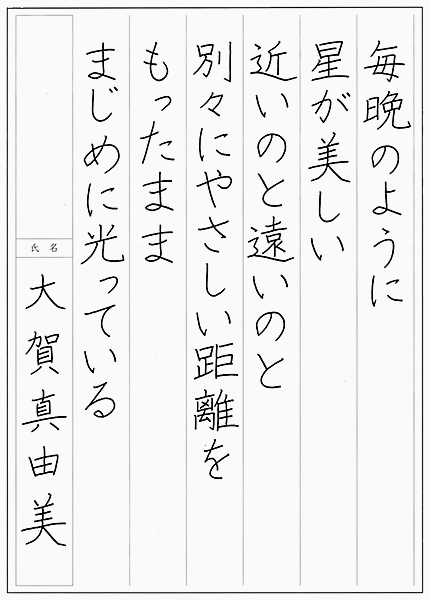 毎晩のように
星が美しい
近いのと遠いのと
別々にやさしい距離を
もったまま
まじめに光っている
氏名
大賀真由美